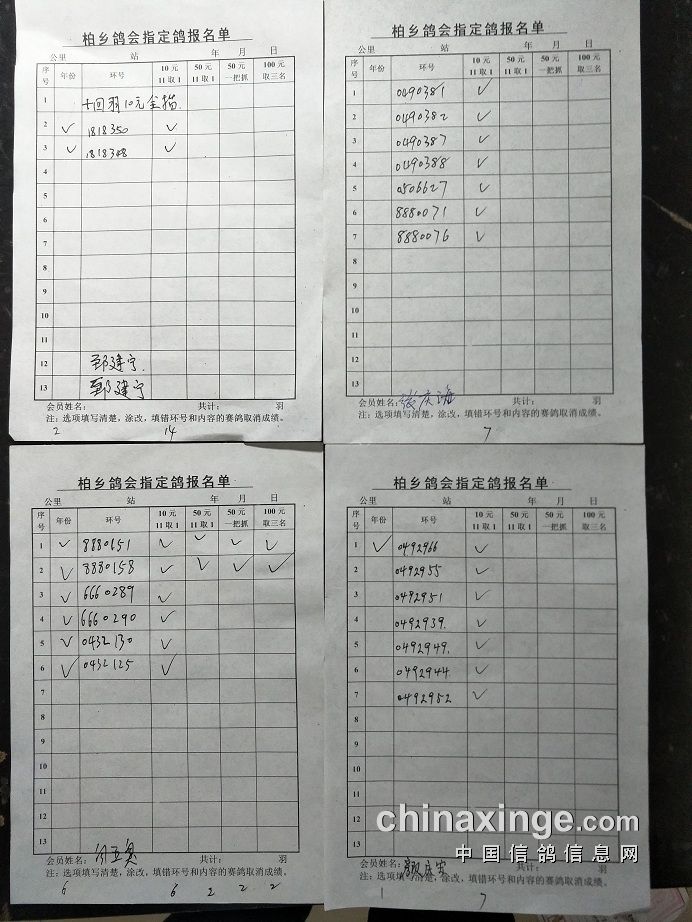 柏乡鸽会指定鸽报名单
公里 站 年 月 日
序号 年份 环号 10元 11取1 50元 11取1 50元 一把抓 100元 取三名
1 十四羽10元全指.
2 ✓ 1818350 ✓
3 ✓ 1818348 ✓
4
5
6
7
8
9
10
11
12 郅建宁.
13 郅建宁
会员姓名： 共计： 羽
注：选项填写清楚，涂改，填错环号和内容的赛鸽取消成绩。
2 14
柏乡鸽会指定鸽报名单
公里 站 年 月 日
序号 年份 环号 10元 11取1 50元 11取1 50元 一把抓 100元 取三名
1 0490381 ✓
2 0490382 ✓
3 0490387 ✓
4 0490388 ✓
5 0506627 ✓
6 8880071 ✓
7 8880076 ✓
8
9
10
11
12
13
会员姓名： 张庆海 共计： 羽
注：选项填写清楚，涂改，填错环号和内容的赛鸽取消成绩。
7
柏乡鸽会指定鸽报名单
公里 站 年 月 日
序号 年份 环号 10元 11取1 50元 11取1 50元 一把抓 100元 取三名
1 ✓ 8880151 ✓ ✓ ✓ ✓
2 ✓ 8880158 ✓ ✓ ✓ ✓
3 ✓ 6660289 ✓
4 ✓ 6660290 ✓
5 ✓ 0432130 ✓
6 ✓ 0432125 ✓
7
8
9
10
11
12
13
会员姓名： 共计： 羽
注：选项填写清楚，涂改，填错环号和内容的赛鸽取消成绩。
6 6 2 2 2
柏乡鸽会指定鸽报名单
公里 站 年 月 日
序号 年份 环号 10元 11取1 50元 11取1 50元 一把抓 100元 取三名
1 ✓ 0492966 ✓
2 0492955 ✓
3 0492951 ✓
4 0492939. ✓
5 0492949. ✓
6 0492944 ✓
7 0492952 ✓
8
9
10
11
12
13
会员姓名： 共计： 羽
注：选项填写清楚，涂改，填错环号和内容的赛鸽取消成绩。
1 7
chinaxinge.com
中国信鸽信息网